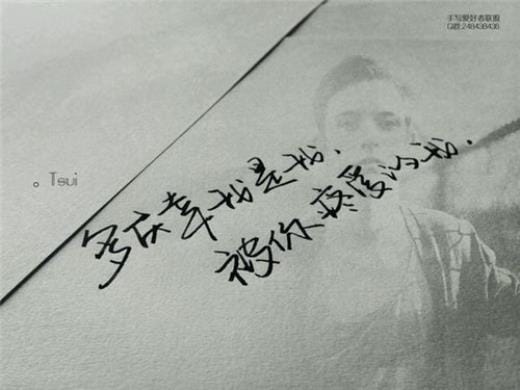 手写爱好者联盟
Q群:248438436
。Tsui
多庆幸我是我.
被你疼爱的我.